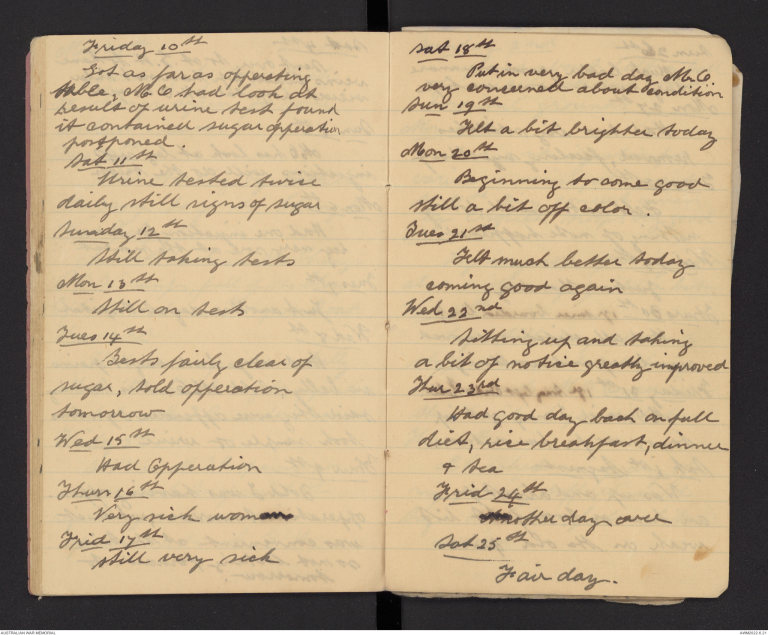 Friday 10st
Got as far as opperating
table, M.O had look at
result of urine test found
it contained sugar opperation
postponed.
Sat 11st
Urine tested twise
daily still signs of sugar
Sunday 12st
Still taking tests
Mon 13st
Still on tests
Tues 14st
Tests fairly clear of
sugar, told opperation
tomorrow
Wed 15st
Had Opperation
Thurs 16st
Very sick
Frid 17st
still very sick
Sat 18st
Put in very bad day M.O
very concerned about condition
Sun 19st
Felt a bit brighter today
Mon 20st
Beginning to come good
still a bit off color.
Tues 21st
Felt much better today
coming good again
Wed 22nd
Sitting up and taking
a bit of notice greatly improved
Thur 23rd
Had good day back on full
diet, rice breakfast, dinner
& tea
Frid 24st
Another day over
Sat 25st
Fair day.
AUSTRALIAN WAR MEMORIAL